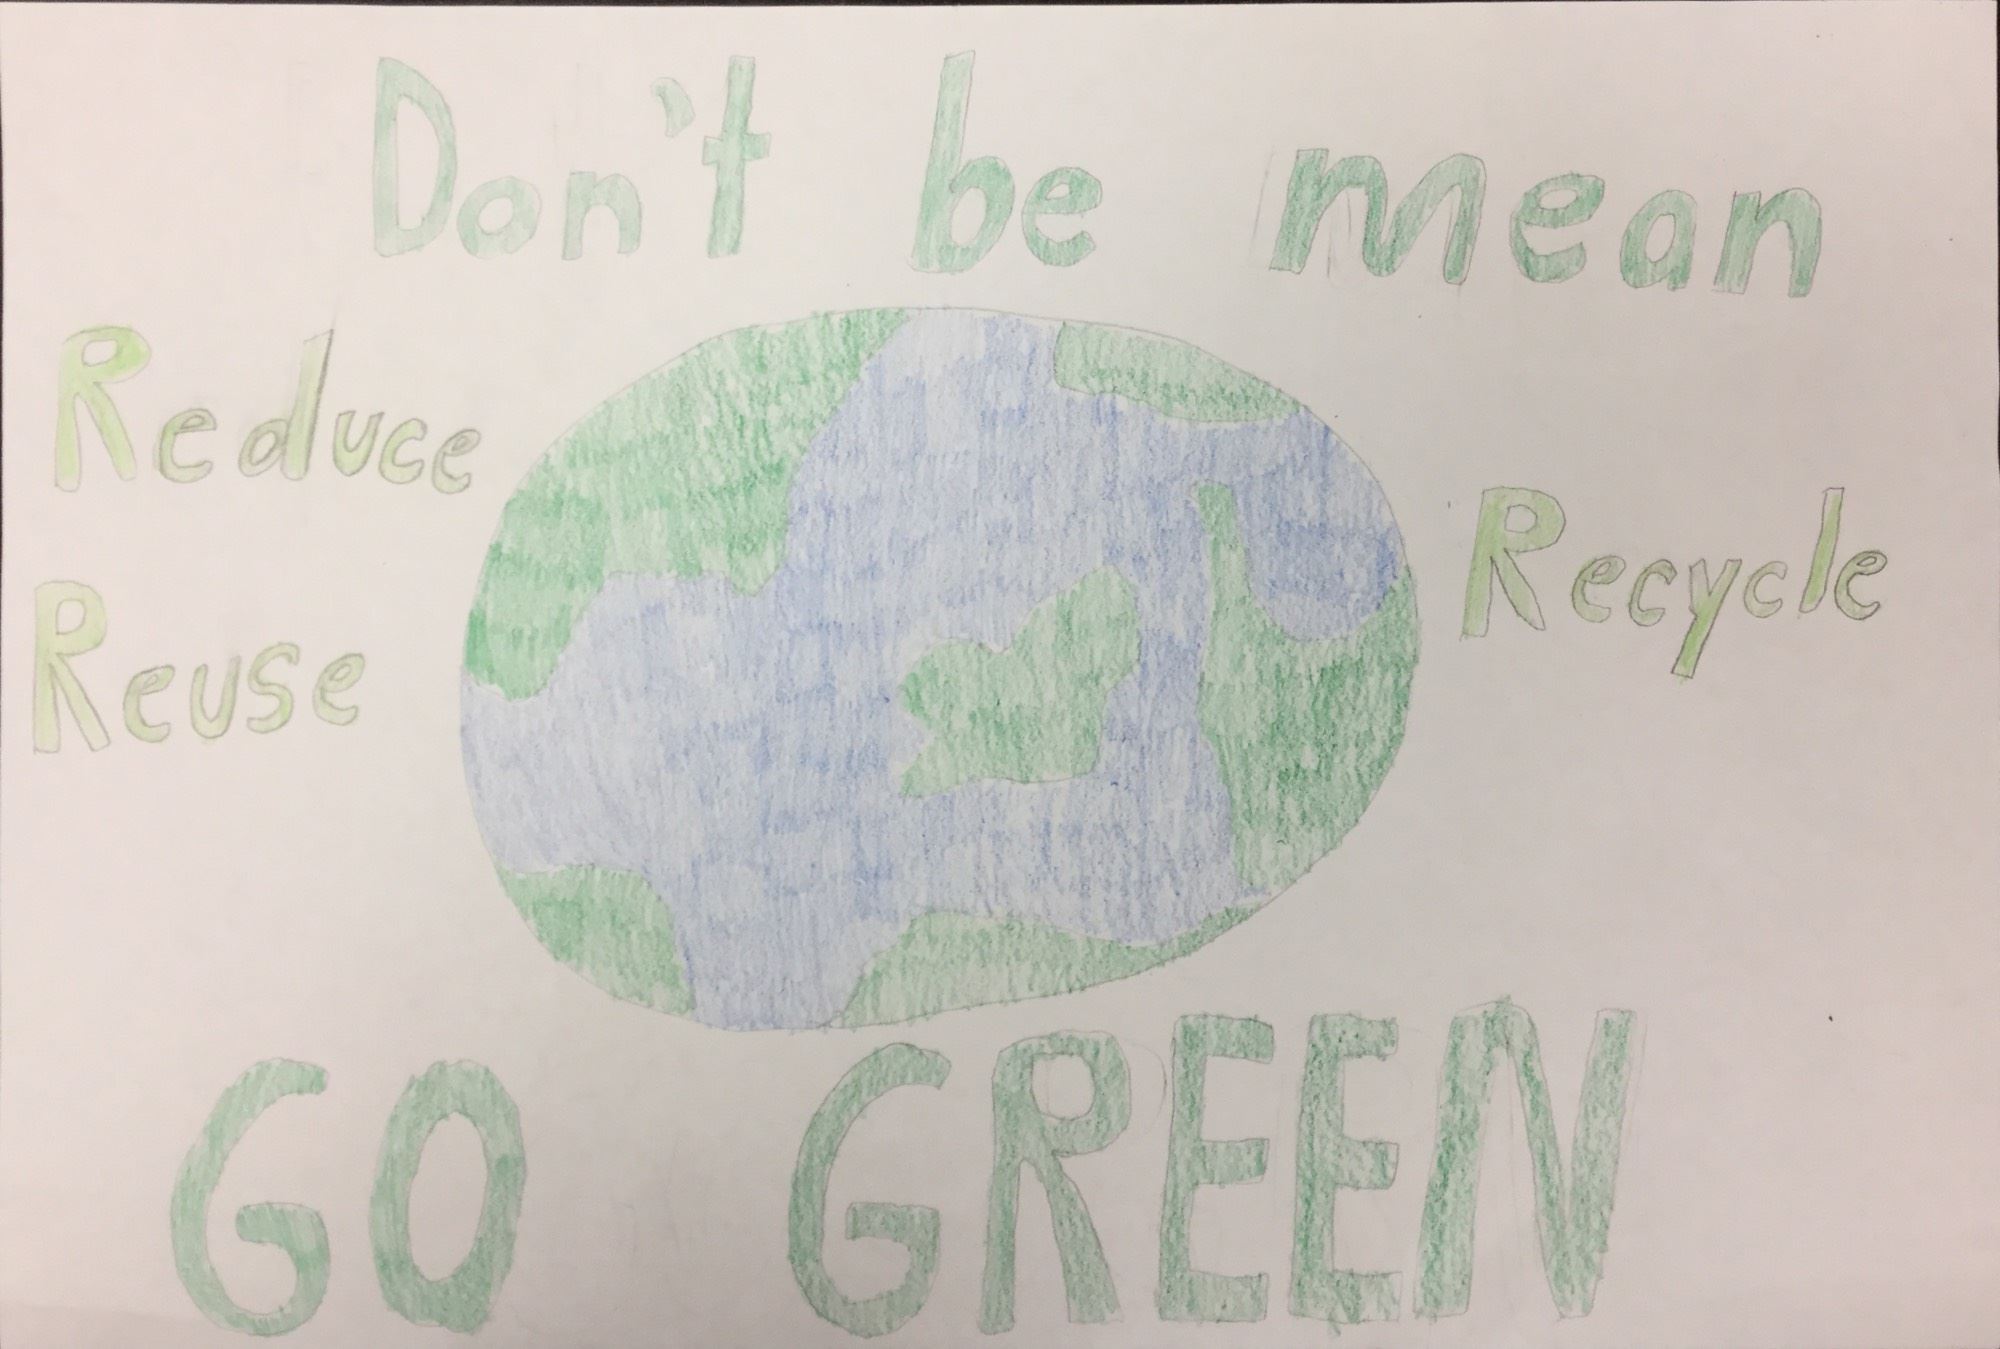 Don't be mean
Reduce
Reuse
Recycle
GO GREEN